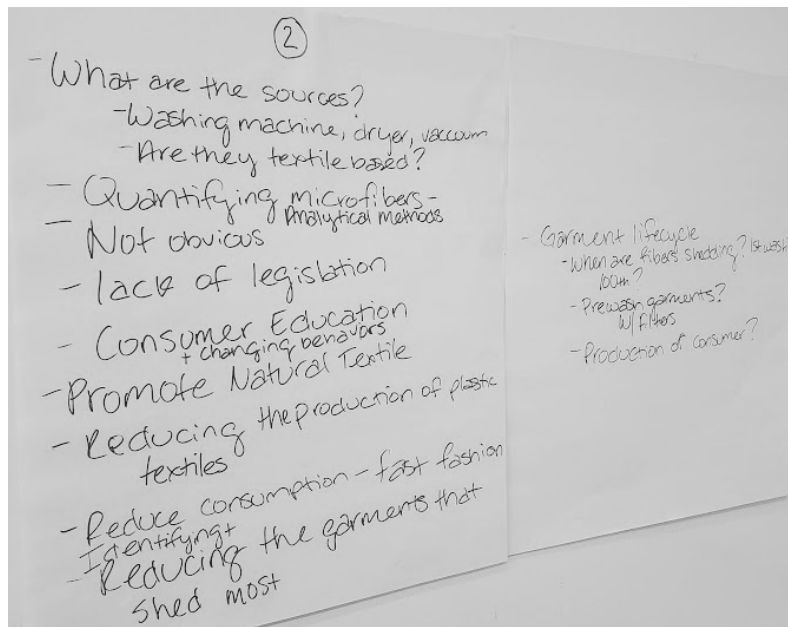 2
- What are the sources?
- Washing machine, dryer, vaccuum
- Are they textile based?
- Quantifying microfibers -
Analytical methods
- Not obvious
- lack of legislation
- Consumer Education
+ changing behavors
- Promote Natural Textile
- Reducing the production of plastic
textiles
- Reduce consumption - fast fashion
Identifying +
- Reducing the garments that
shed most
- Garment lifecycle
- When are fibers shedding? 1st wash
100th?
- Prewash garments?
w/ filters
- Production or consumer?